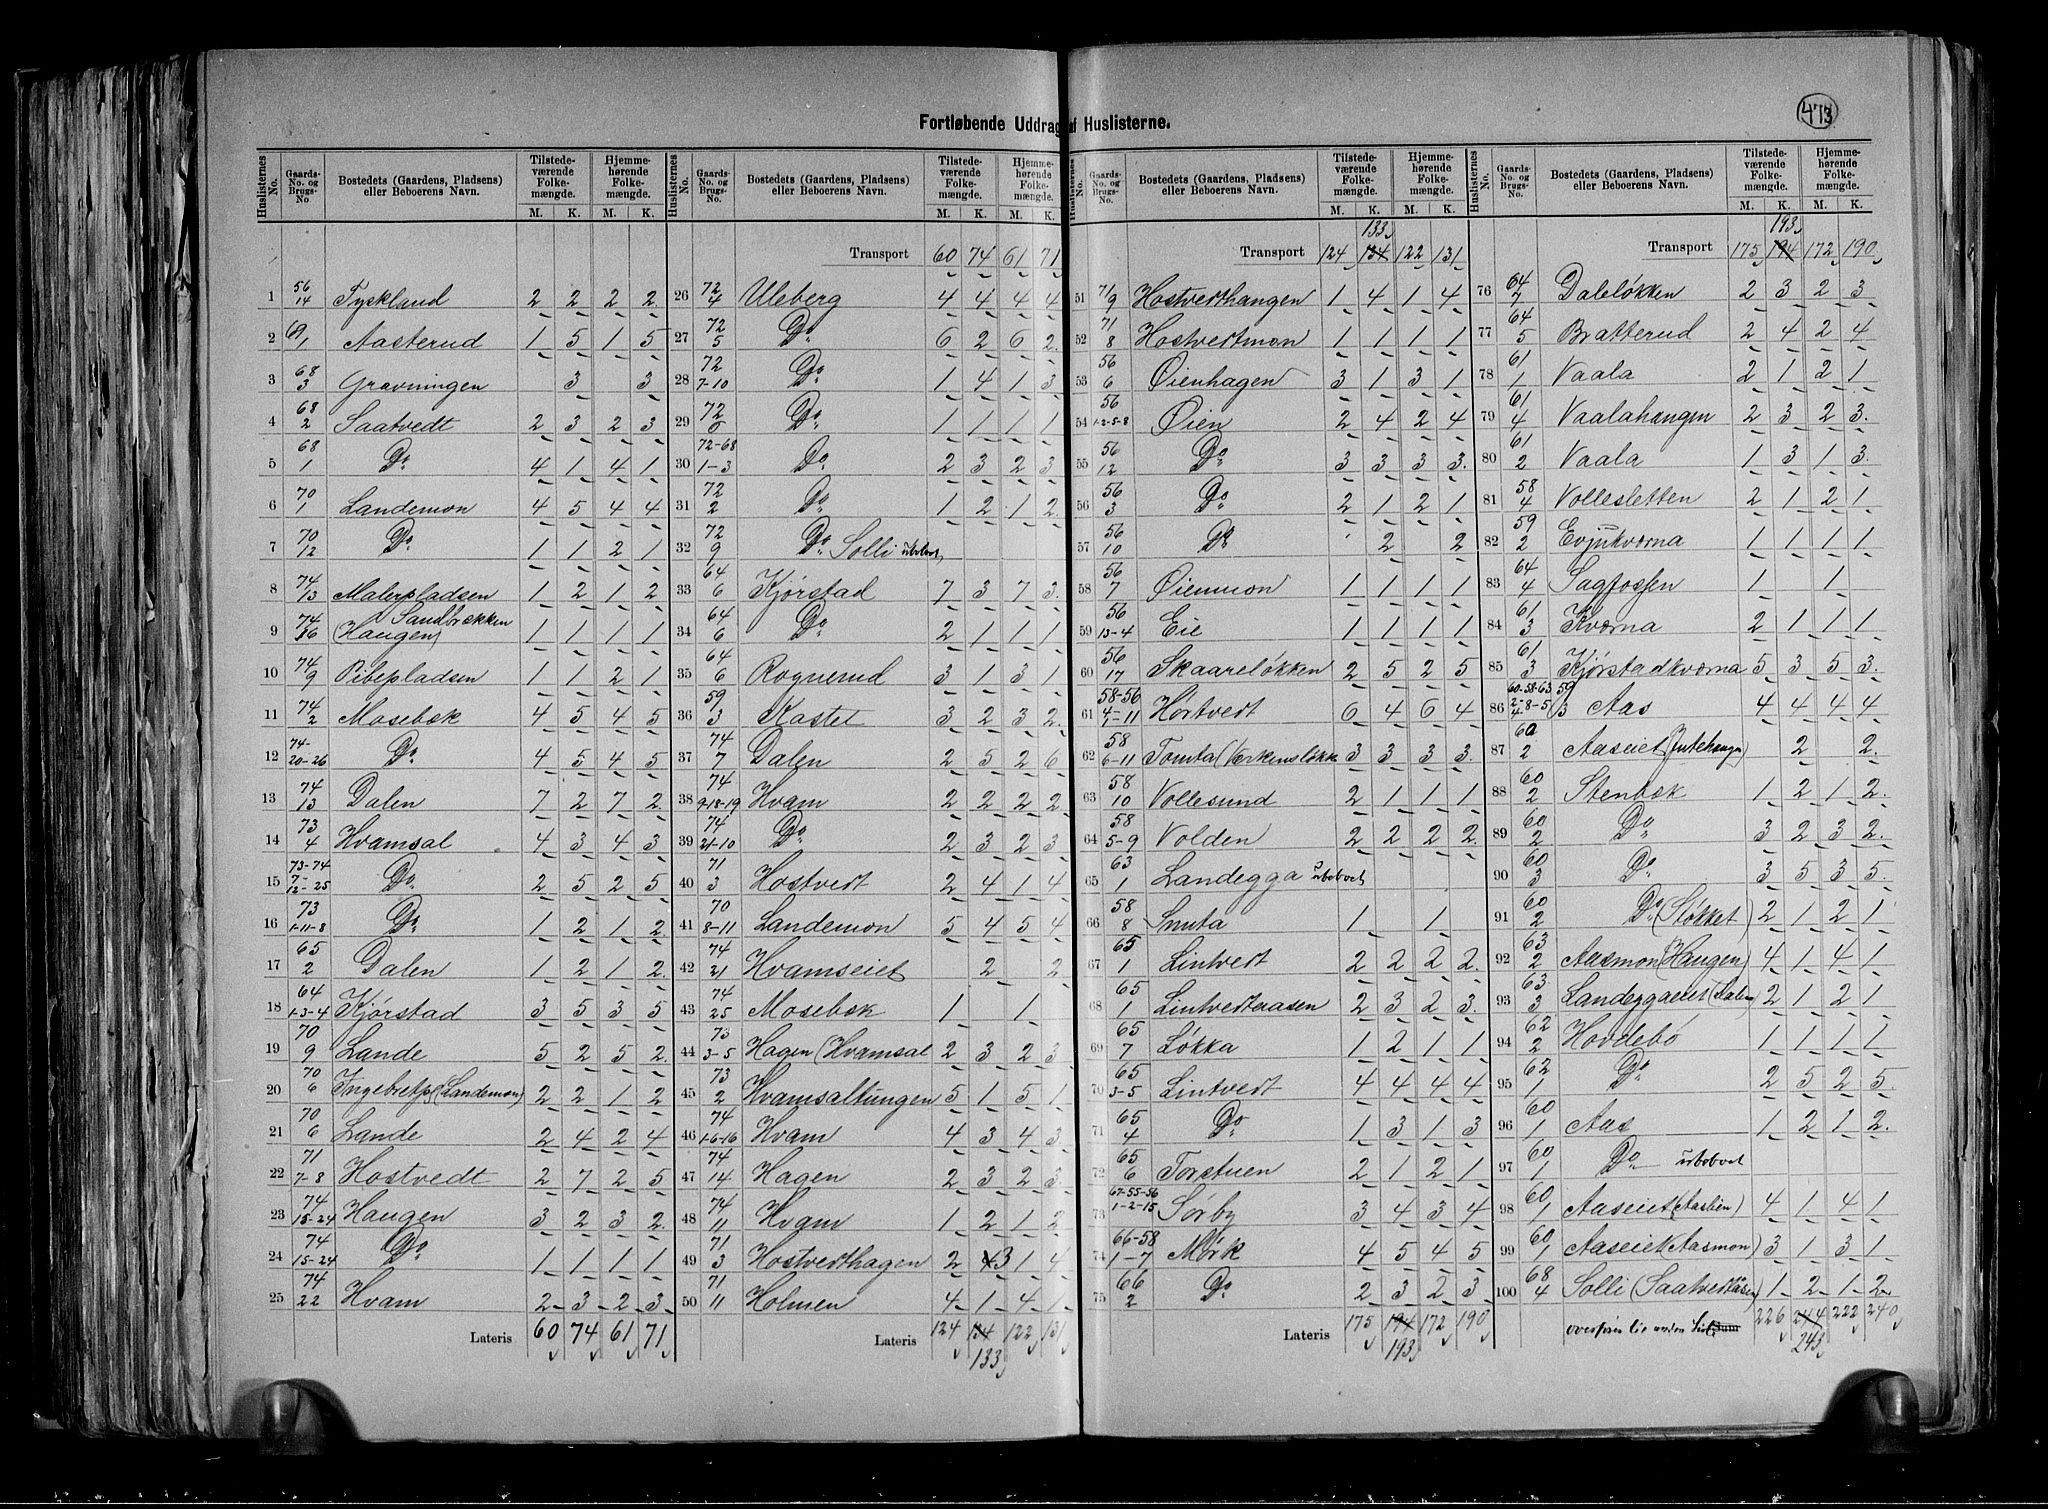 473
Fortløbende Uddrag af Huslisterne.
Huslisternes No. Gaards-No. og Brugs-No. Bostedets (Gaardens, Pladsens) eller Beboerens Navn. Tilstedeværende Folkemængde. M. K. Hjemmehørende Folkemængde. M. K.
1 56/14 Tyskland 2 2 2 2
2 69/1 Aasterud 1 5 1 5
3 68/3 Gravningen 3 3
4 68/2 Saatvedt 2 3 2 3
5 68/1 Do 4 1 4 1
6 70/1 Landemon 4 5 4 4
7 70/12 Do 1 1 2 1
8 74/13 Malerpladsen 1 2 1 2
9 74/16 Sandbrækken (Haugen) 1 1 1 1
10 74/9 Pibepladsen 1 1 2 1
11 74/2 Mosebæk 4 5 4 5
12 74-/20-26 Do 4 5 4 5
13 74/13 Dalen 7 2 7 2
14 73/4 Hvamsal 4 3 4 3
15 73-74/7-12-25 Do 2 5 2 5
16 73/1-11-8 Do 1 2 1 2
17 65/2 Dalen 1 2 1 2
18 64/1-3-4 Kjørstad 3 5 3 5
19 70/9 Lande 5 2 5 2
20 70/6 (Landemon) 2 2 1 2
21 70/6 Lande 2 4 2 4
22 71/7-8 Hostvedt 2 7 2 5
23 74/15-24 Haugen 3 2 3 2
24 74/15-24 Do 1 1 1 1
25 74/22 Hvam 2 3 2 3
Lateris 60 74 61 71
Huslisternes No. Gaards-No. og Brugs-No. Bostedets (Gaardens, Pladsens) eller Beboerens Navn. Tilstedeværende Folkemængde. M. K. Hjemmehørende Folkemængde. M. K.
Transport 60 74 61 71
26 72/4 Uleberg 4 4 4 4
27 72/5 Do 6 2 6 2
28 72/7-10 Do 1 4 1 3
29 72/6 Do 1 1 1 1
30 72-68/1-3 Do 2 3 2 3
31 72/2 Do 1 2 1 2
32 72/9 Do Solli ubeboet
33 64/6 Kjørstad 7 3 7 3
34 64/6 Do 2 1 1 1
35 64/6 Rognerud 3 1 3 1
36 59/3 Kastet 3 2 3 2
37 74/7 Dalen 2 5 2 6
38 74/9-18-19 Hvam 2 2 2 2
39 74/21-10 Do 2 3 2 3
40 71/3 Hostvedt 2 4 1 4
41 70/8-11 Landemon 5 4 5 4
42 74/21 Hvamseiet 2 2
43 74/25 Mosebæk 1 1
44 73/3-5 Hagen (Hvamsal 2 3 2 3
45 73/2 Hvamsaltungen 5 1 5 1
46 74/1-6-16 Hvam 4 3 4 3
47 74/14 Hagen 2 3 2 3
48 74/11 Hvam 1 2 1 2
49 71/3 Hostvedthagen 2 4 3 1 4
50 71/11 Holmen 4 1 4 1
Lateris 124 134 122 131
133
Huslisternes No. Gaards-No. og Brugs-No. Bostedets (Gaardens, Pladsens) eller Beboerens Navn. Tilstedeværende Folkemængde. M. K. Hjemmehørende Folkemængde. M. K.
133
Transport 124 134 122 131
51 71/9 Hostvedthaugen 1 4 1 4
52 71/8 Hostvedtmon 1 1 1 1
53 56/6 Øienhagen 3 1 3 1
54 56/1-2-5-8 Øien 2 4 2 4
55 56/12 Do 3 3 3 3
56 56/3 Do 2 1 2 1
57 56/10 Do 2 2
58 56/7 Øienmon 1 1 1 1
59 56/13-4 Eie 1 1 1 1
60 56/17 Skaareløkken 2 5 2 5
61 58-56/4-11 Hørtvedt 6 4 6 4
62 58/6-11 Tomta (Værkensløkk 3 3 3 3
63 58/10 Vollesund 2 1 1 1
64 58/5-9 Volden 2 2 2 2
65 63/1 Landegga ubeboet
66 58/8 Smuta 1 1
67 65/1 Lintvedt 2 2 2 2
68 65/1 Lintvedtaasen 2 3 2 3
69 65/7 Løkka 1 2 1 1
70 65/3-5 Lintvedt 4 4 4 4
71 65/4 Do 1 3 1 3
72 65/6 Torstuen 2 1 2 1
73 67-55-56/1-2-15 Sørby 3 4 3 4
74 66-58/1-7 Mørk 4 5 4 5
75 66/2 Do 2 3 2 3
Lateris 175 194 172 190
193
Huslisternes No. Gaards-No. og Brugs-No. Bostedets (Gaardens, Pladsens) eller Beboerens Navn. Tilstedeværende Folkemængde. M. K. Hjemmehørende Folkemængde. M. K.
193
Transport 175 194 172 190
76 64/7 Daleløkken 2 3 2 3
77 64/5 Bratterud 2 4 2 4
78 61/1 Vaala 2 1 2 1
79 61/4 Vaalahaugen 2 3 2 3
80 61/2 Vaala 1 3 1 3
81 58/4 Vollesletten 2 1 2 1
82 59/2 Evjukværna 1 1 1 1
83 64/4 Sagfossen 1 1
84 61/3 Kværna 2 1 1 1
85 61/3 Kjørstadkværna 5 3 5 3
86 60-58-63 59/2-8-5 3 Aas 4 4 4 4
87 60/2 Aaseiet 2 2
88 60/2 Stenbæk 1 2 1 2
89 60/2 Do 3 2 3 2
90 60/3 Do 3 5 3 5
91 60/2 Do (Støkket) 2 1 2 1
92 63/2 Aasmon (Haugen) 4 1 4 1
93 63/3 Landeggaeiet (Dalen) 2 1 2 1
94 62/2 Hovdebø 1 1 1 1
95 62/1 Do 2 5 2 5
96 60/1 Aas 1 2 1 2
97 60/1 Do ubeboet
98 60/1 Aaseiet (Aaslien) 4 1 4 1
99 60/1 Aaseiet Aasmon) 3 1 3 1
100 68/4 Solli (Saatvedtaasen) 1 2 1 2
226 244 222 240
243